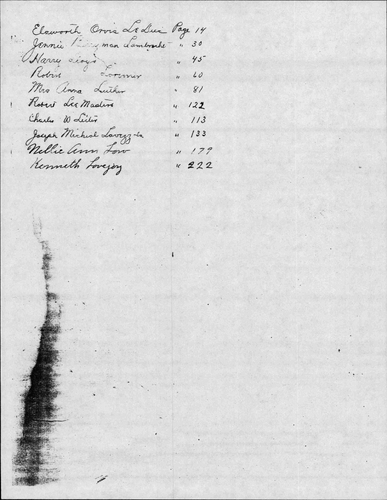 Elsworth Orvis LeDue Page 14
Jennie man " 30
Harry " 45
Robin Lorimer " 60
Mrs Anna Luther " 81
Robert Lee Masters " 122
Charles W Leiter " 113
Joseph Michael " 133
Nellie Ann Low " 179
Kenneth Lovejoy " 222